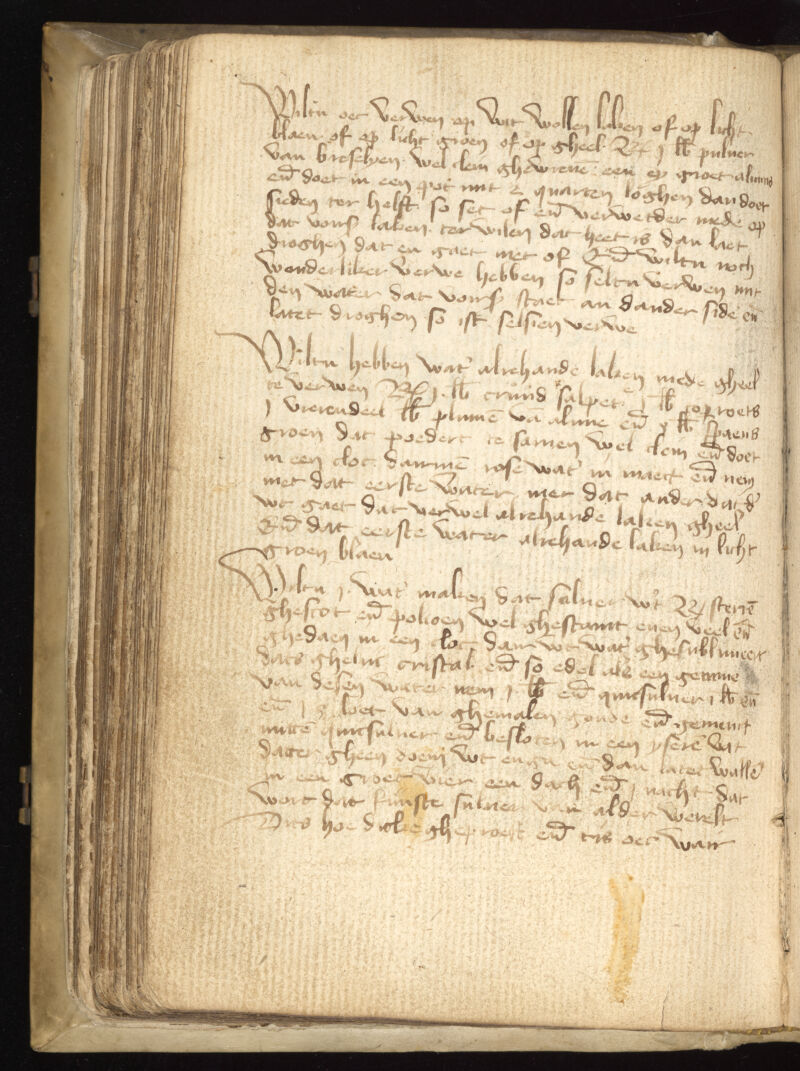 Wiltu oec verwen op wit wollen laken of op licht
blaeu of op licht groen of op gheel Rx j lb pulver
van breselyen wel clein ghewreven een ey groet aluuns
eñ doet in een pot mit 2 quarten loghen dan doet
sieden ter helft so set of eñ verwetder mede op
dat vors laken terwilen dat heet is dan laet
droghen dat en gaet niet of Eñ wiltu noch
wonderliker verwe hebben so seltu verwen mit
den water dat vors staet an dander side eñ
latet droghen so ist selsien verwe
Wiltu hebben wat alrehande laken mede gheel
te verwen Rx j lb salpet lb coproets
j vierendeel lb plumē vā alune eñ lb spaens
groen dat poedert te samen wel clein eñ doet
in een cloc daermē rose wat in maect eñ nem
met dat eerste water mer dat ander dat
wt gaet dat verwet alrehande laken gheel
Eñ dat eerste water alrehande laken in licht
groen blaeu
Wiltu j wat maken dat sulver wt Rx
ghescot eñ wel ghestamt even veel eñ
ghedaen in een cloc daer wt wat ghesublimeert
dats ghelijc cristal eñ so edel als een gemme
van desen water nem j lb eñ quicsulver j lb eñ
eñ j loet van ghemalen goude eñ gemint
mittē quicsulver eñ besloten in een yserē vat
datter gheen doem wt engā eñ dan latet wallē
in een groet vier een dach eñ j nacht dat
wort dat finste sulver van alder werelt
Dits hoe dicke gheproeft eñ tis oec waer